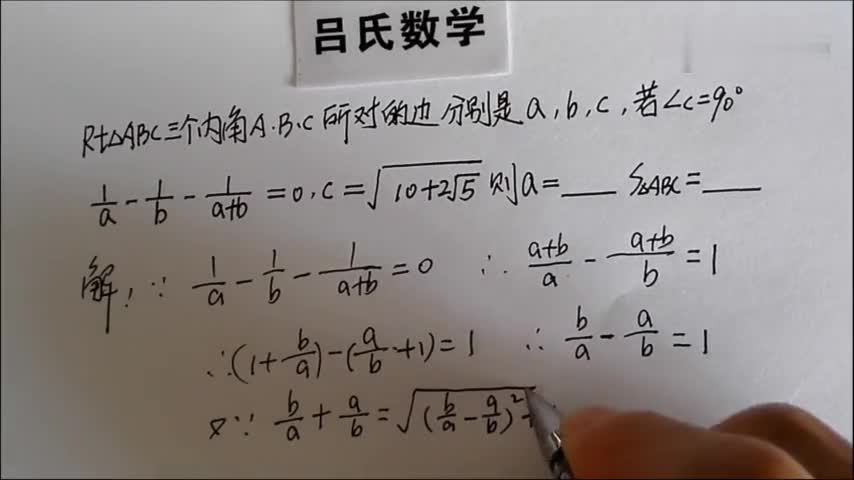 吕氏数学
Rt△ABC三个内角A.B.C所对的边分别是a,b,c,若∠C=90°
1/a - 1/b - 1/(a+b) = 0, c = √(10+2√5) 则a=____ S△ABC=____
解:∵ 1/a - 1/b - 1/(a+b) = 0 ∴ (a+b)/a - (a+b)/b = 1
∴(1+b/a)-(a/b+1)=1 ∴ b/a - a/b = 1
又∵ b/a + a/b = √((b/a - a/b)²+